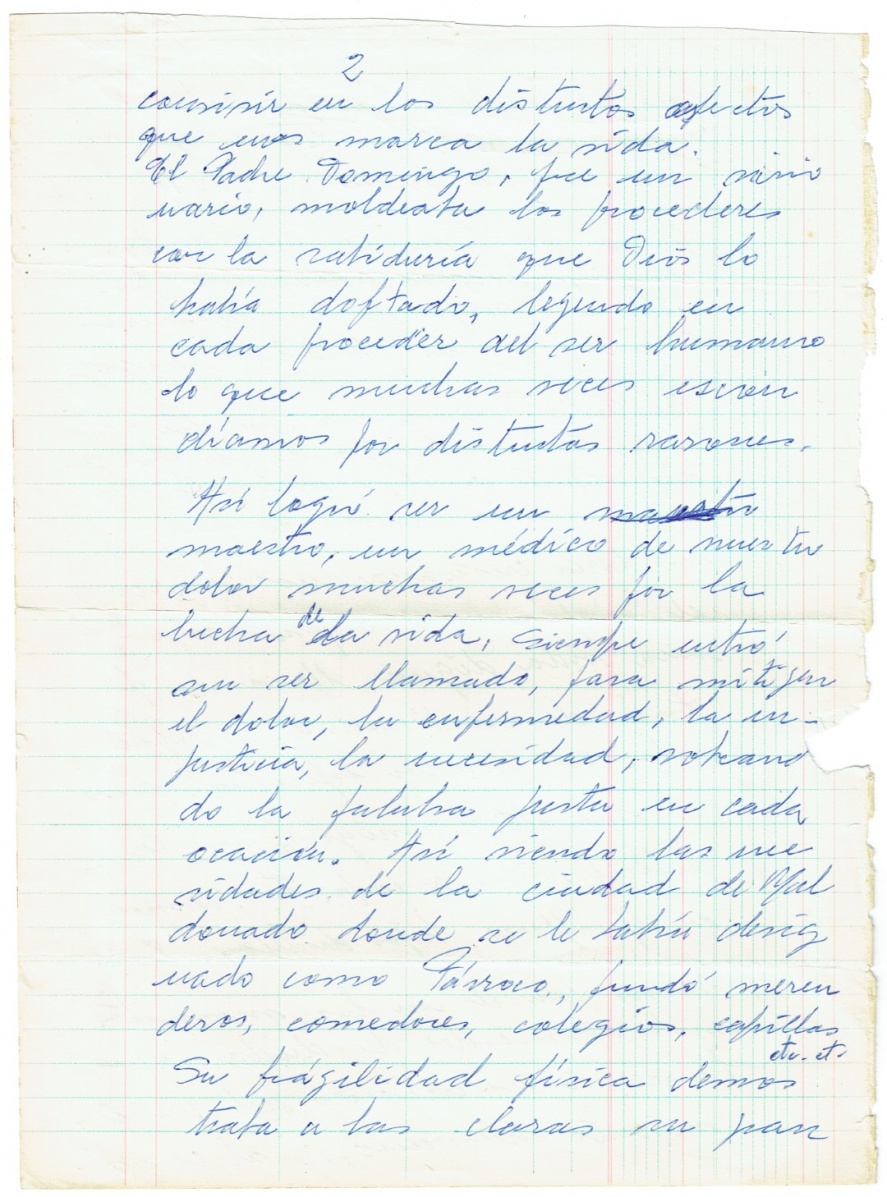 2
en los distintos afectos
que nos marca la vida.
El Padre Domingo, fue un misio
nario, moldeaba los procederes
con la sabiduría que Dios lo
había doptado, leyendo en
cada proceder del ser humano
lo que muchas veces escon
díamos por distintas razones.
Así logró ser un maestro
maestro, un médico de nuestro
dolor muchas veces por la
lucha de la vida, siempre entró
sin ser llamado, para mitigar
el dolor, la enfermedad, la in-
justicia, la necesidad, volcand
do la palabra justa en cada
ocación. Así viendo las nece
sidades de la ciudad de Mal
donado donde se le había desig
nado como Párroco, fundó meren
deros, comedores, colegios, capillas
etc. etc
Su frágilidad física demos
traba a las claras su gran